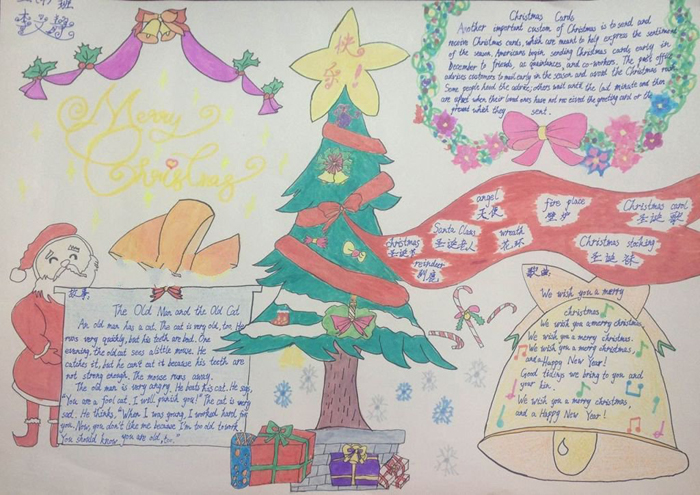 班
Merry
Christmas
快
乐!
Christmas Cards
Another important custom of Christmas is to send and
receive Christmas cards, which are meant to help express the sentiment
of the season. Americans begin sending Christmas cards early in
December to friends, acquaintances, and co-workers. The post office
advises customers to mail early in the season and avoid the Christmas rush
Some people heed the advice; others wait until the last minute and then
are upset when their loved ones have not received the greeting card or the
sent.
angel
天使
fire place
壁炉
Christmas carol
圣诞颂歌
Santa Claus
圣诞老人
wreath
花环
Christmas stocking
圣诞袜
christmas
圣诞节
reindeer
驯鹿
故事
The Old Man and the Old Cat
An old man has a cat. The cat is very old, too. He
runs very quickly, but his teeth are bad. One
evening, the old cat sees a little mouse. He
catches it, but he can't eat it because his teeth are
not strong enough. The mouse runs away.
The old man is very angry. He beats his cat. He says,
"You are a fool cat, I will punish you!" The cat is very
sad. He thinks, "When I was young, I worked hard for
you. Now, you don't like me because I'm too old to work.
You should know you are old, too."
歌曲
We wish you a merry
christmas
We wish you a merry christmas
We wish you a merry christmas.
We wish you a merry christmas,
and a Happy New Year!
Good tidings we bring to you and
your kin.
We wish you a merry christmas,
and a Happy New Year!